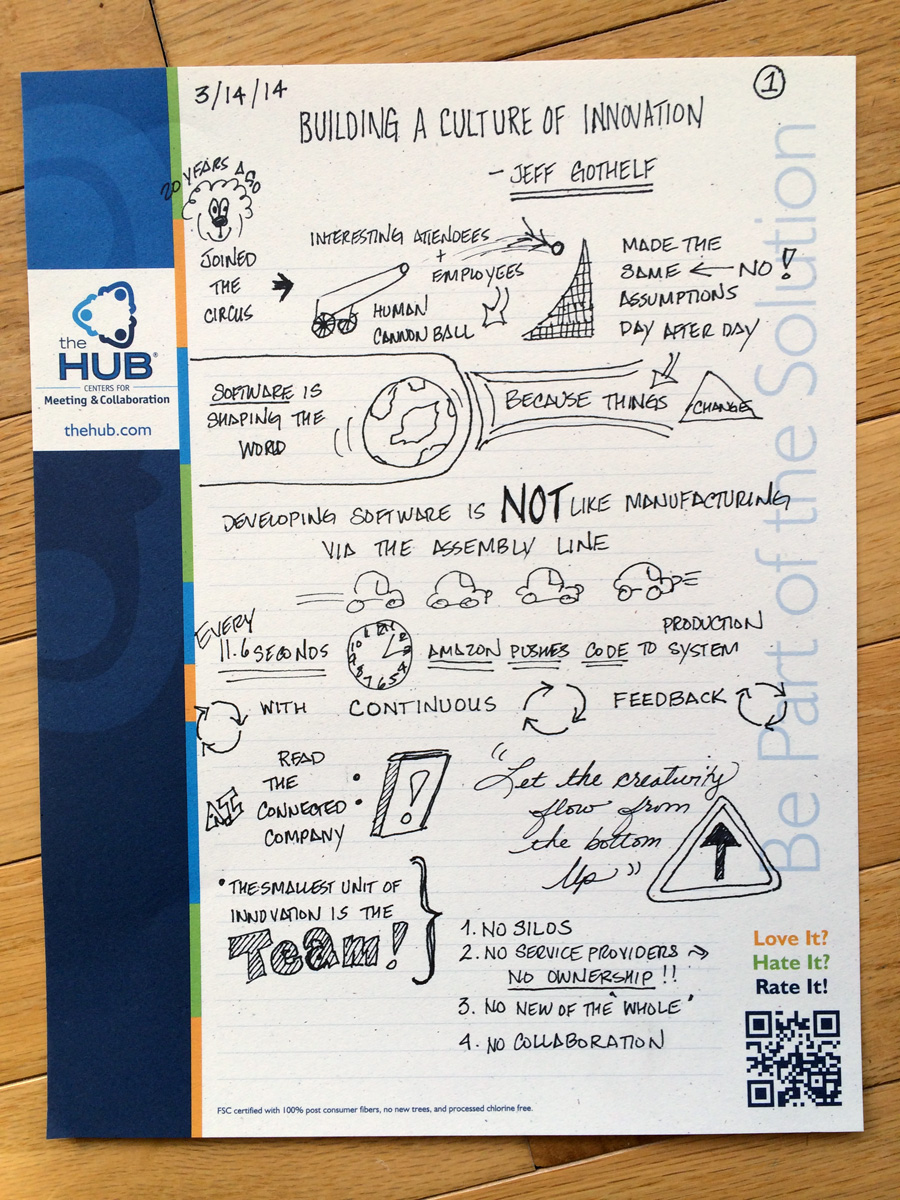 3/14/14
1
BUILDING A CULTURE OF INNOVATION
- JEFF GOTHELF
20 YEARS AGO
JOINED
THE
CIRCUS
INTERESTING ATTENDEES
+
EMPLOYEES
HUMAN
CANNON BALL
MADE THE
SAME ← NO!
ASSUMPTIONS
DAY AFTER DAY
SOFTWARE IS
SHAPING THE
WORLD
BECAUSE THINGS
CHANGE
DEVELOPING SOFTWARE IS NOT LIKE MANUFACTURING
VIA THE ASSEMBLY LINE
EVERY
11.6 SECONDS
AMAZON PUSHES CODE TO PRODUCTION
SYSTEM
WITH CONTINUOUS FEEDBACK
READ
THE
CONNECTED
COMPANY
"Let the creativity
flow from
the bottom
Up"
• THE SMALLEST UNIT OF
INNOVATION IS THE
TEAM!
1. NO SILOS
2. NO SERVICE PROVIDERS →
NO OWNERSHIP!!
3. NO NEW OF THE "WHOLE"
4. NO COLLABORATION
the
HUB®
CENTERS FOR
Meeting & Collaboration
thehub.com
Be Part of the Solution
Love It?
Hate It?
Rate It!
FSC certified with 100% post consumer fibers, no new trees, and processed chlorine free.